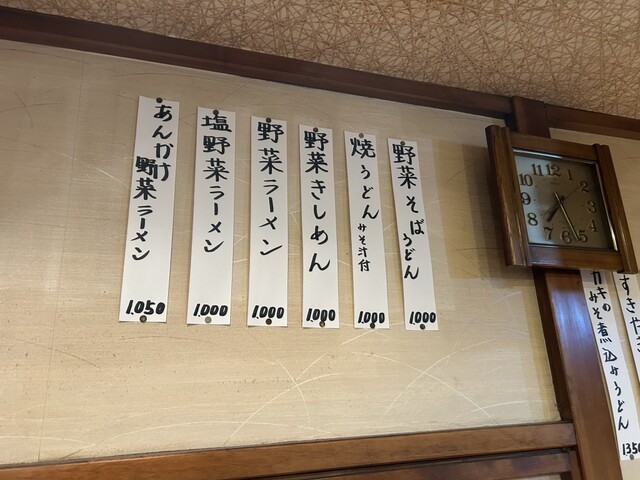 野菜そば
うどん
1,000
焼うどん
みそ汁付
1,000
野菜きしめん
1,000
野菜ラーメン
1,000
塩野菜ラーメン
1,000
あんかけ
野菜ラーメン
1,050
12
1
2
3
4
5
6
7
8
9
10
11
すきやき
カキの
みそ煮込みうどん
1350